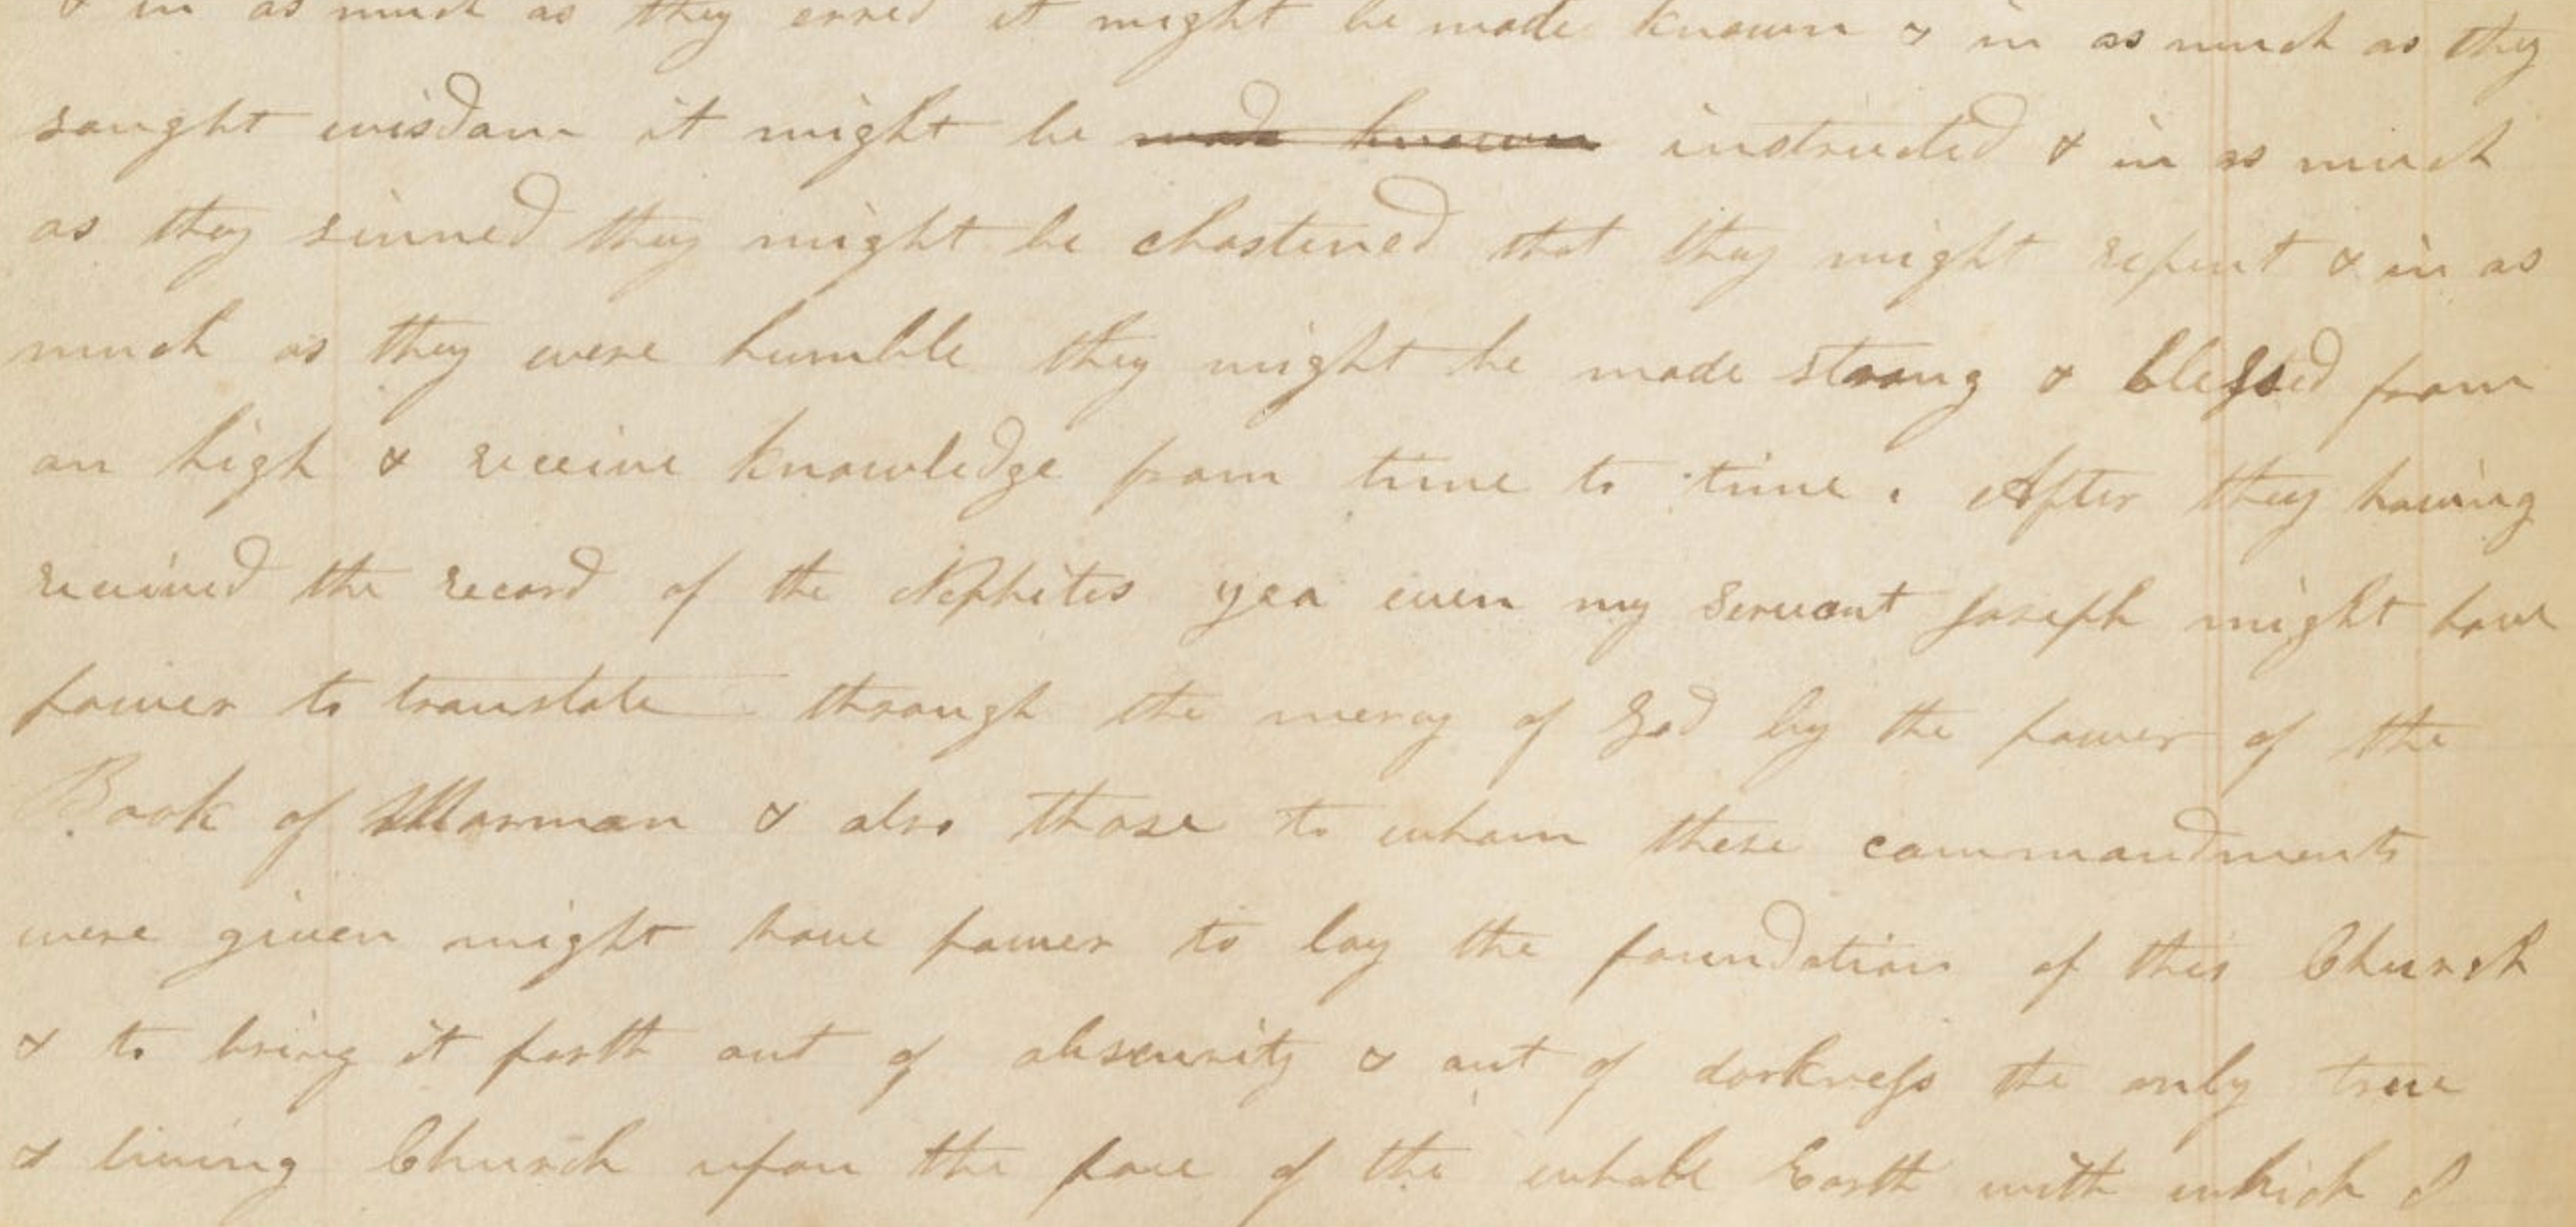 & in as much as they erred it might be made known & in as much as they
sought wisdom it might be made known instructed & in as much
as they sinned they might be chastened that they might repent & in as
much as they were humble they might be made strong & blessed from
on high & receive knowledge from time to time. After they having
received the record of the Nephites yea even my servant Joseph might have
power to translate through the mercy of God by the power of the
Book of Mormon & also those to whom these commandments
were given might have power to lay the foundation of this Church
& to bring it forth out of obscurity & out of darkness the only true
& living Church upon the face of the whole Earth with which I